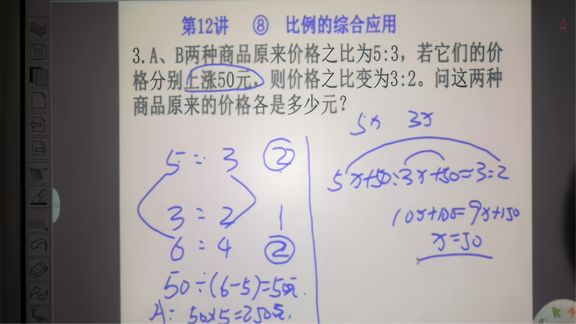 第12讲 ⑧ 比例的综合应用
3.A、B两种商品原来价格之比为5:3，若它们的价
格分别上涨50元，则价格之比变为3:2。问这两种
商品原来的价格各是多少元？
5x 3x
5 : 3 ②
5x+50:3x+50=3:2
3 = 2 1
10x+100=9x+150
6 = 4 ②
x=50
50÷(6-5)=50元.
A: 50×5=250元.